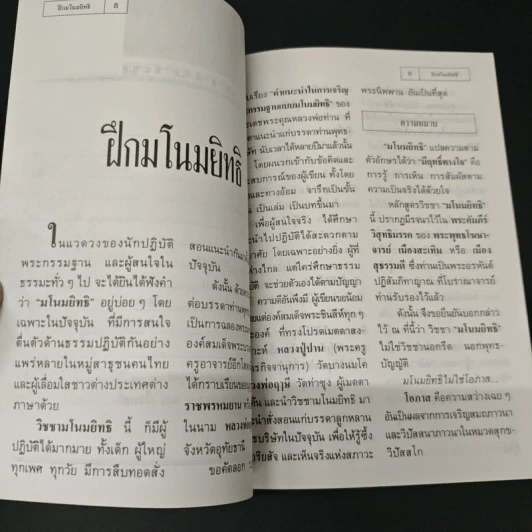 ฝึกมโนมยิทธิ
๕
ฝึกมโนมยิทธิ
ในแวดวงของนักปฏิบัติ
พระกรรมฐาน และผู้สนใจใน
ธรรมะทั่วๆ ไป จะได้ยินได้ฟังคำ
ว่า "มโนมยิทธิ" อยู่บ่อยๆ โดย
เฉพาะในปัจจุบัน ที่มีการสนใจ
ตื่นตัวด้านธรรมปฏิบัติกันอย่าง
แพร่หลายในหมู่สาธุชนคนไทย
และผู้เลื่อมใสชาวต่างประเทศต่าง
ภาษาด้วย
วิชชามโนมยิทธิ นี้ ก็มีผู้
ปฏิบัติได้มากมาย ทั้งเด็ก ผู้ใหญ่
ทุกเพศ ทุกวัย มีการสืบทอดสั่ง
สอนแนะนำกัน
ปัจจุบัน
ดังนั้น ด้วย
ต่อบรรดาท่านพุท
เป็นการฉลองพระ
องค์สมเด็จพระ
ครูอาจารย์อีกโส
ได้กราบเรียนขอ
ราชพรหมยาน
ในนาม หลวงพ่อ
จังหวัดอุทัยธานี
ขอคัดลอก
ฝึกมโนมยิทธิ
เรียง "คำแนะนำในการเจริญ
กรรมฐานแบบมโนมยิทธิ" ของ
เดชพระคุณหลวงพ่อท่าน ที่
ตาแนะนำแก่บรรดาท่านพุทธ
ษัท นับเวลาได้หลายปีมาแล้วนั้น
โดยผนวกเข้ากับข้อคิดและ
สบการณ์ของผู้เขียน ทั้งโดย
และทางอ้อม จารึกเป็นชั้น
เป็นเล่ม เป็นบทขึ้นมา
เพื่อผู้สนใจจริง ได้ศึกษา
นำไปปฏิบัติได้สะดวกตาม
โดยเฉพาะอย่างยิ่ง ผู้ที่
างไกล แต่ใคร่ศึกษาธรรม
จะช่วยตัวเองได้ตามปัญญา
ความดีอันพึงมี ผู้เขียนขอน้อม
แด่องค์สมเด็จพระชินสีห์ทุกๆ
ะองค์ ที่ทรงโปรดเมตตาสง-
าะห์ หลวงปู่ปาน (พระครู
ารกิจจานุการ) วัดบางนมโค
งพ่อฤๅษี วัดท่าซุง ผู้เมตตา
และนำวิชชามโนมยิทธิ มา
นำสั่งสอนแก่บรรดาลูกหลาน
บริษัทในปัจจุบัน เพื่อให้รู้ซึ้ง
ริยสัจ และเห็นจริงแห่งสภาวะ
พระนิพพาน อันเป็นที่สุด
ความหมาย
"มโนมยิทธิ" แปลความตาม
ตัวอักษรได้ว่า "มีฤทธิ์ทางใจ" คือ
การรู้ การเห็น การสัมผัสตาม
ความเป็นจริงได้ด้วยใจ
หลักสูตรวิชชา "มโนมยิทธิ"
นี้ ปรากฏมีรจนาไว้ใน พระคัมภีร์
วิสุทธิมรรค ของ พระพุทธโฆษา-
จารย์ เมืองสะเทิม หรือ เมือง
สุธรรมดี ซึ่งท่านเป็นพระอรหันต์
ปฏิสัมภิทาญาณ ที่โบราณาจารย์
ท่านรับรองไว้แล้ว
ดังนั้น จึงขอยืนยันบอกกล่าว
ไว้ ณ ที่นี้ว่า วิชชา "มโนมยิทธิ"
ไม่ใช่วิชชานอกรีต นอกพุทธ-
บัญญัติ
มโนมยิทธิไม่ใช่โอภาส...
โอภาส คือความสว่างเฉยๆ
อันเป็นผลจากการเจริญสมถภาวนา
และวิปัสสนาภาวนาในหมวดสุกข-
วิปัสสโก